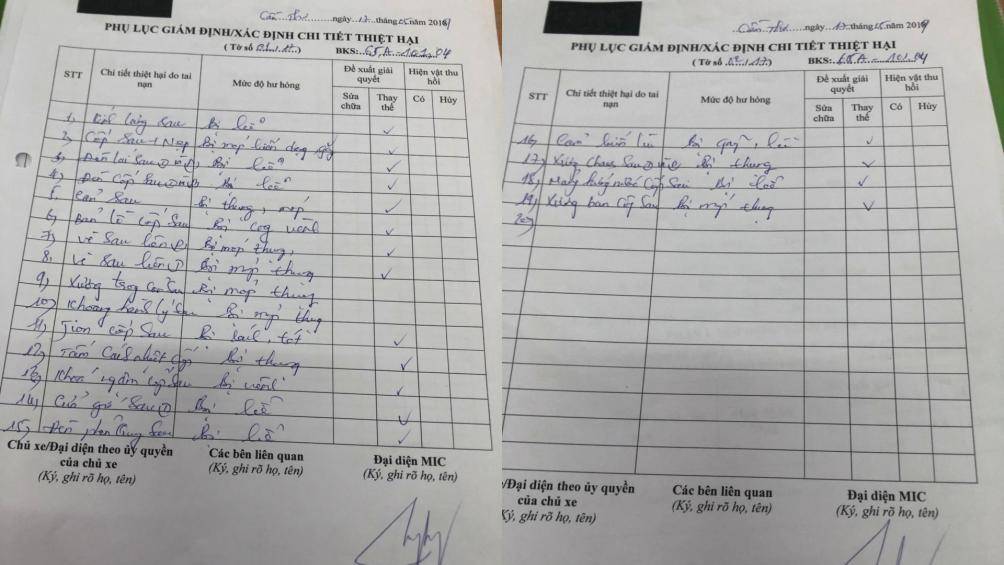 Cần Thơ, ngày 17 tháng 05 năm 2019
PHỤ LỤC GIÁM ĐỊNH/XÁC ĐỊNH CHI TIẾT THIỆT HẠI
( Tờ số 01/17 ) BKS: 65A-101.04
STT Chi tiết thiệt hại do tai nạn Mức độ hư hỏng Đề xuất giải quyết Hiện vật thu hồi
Sửa chữa Thay thế Có Hủy
1, Kính lưng Sau Bị bể
2, Cốp Sau + Nẹp Bị móp biến dạng gãy
3, Đèn lái Sau Bị bể
4, Đèn Cốp Sau Bị bể
5, Cản Sau Bị thủng, móp
6, Bản lề cốp Sau Bị cong vênh
7, Vè Sau bên Bị móp thủng
8, Vè Sau bên Bị móp thủng
9, Xương trong Cốp Sau Bị móp thủng
10, Khoang hành lý Sau Bị móp thủng
11, Jion cốp Sau Bị rách
12, Tấm Cách nhiệt Cốp Bị thủng
13, Khoá ngậm Cốp Sau Bị vênh
14, Sau Bị bể
15, Đèn phản quang Sau Bị bể
Chủ xe/Đại diện theo ủy quyền của chủ xe
(Ký, ghi rõ họ, tên)
Các bên liên quan
(Ký, ghi rõ họ, tên)
Đại diện MIC
(Ký, ghi rõ họ, tên)
Cần Thơ, ngày 17 tháng 05 năm 2019
PHỤ LỤC GIÁM ĐỊNH/XÁC ĐỊNH CHI TIẾT THIỆT HẠI
( Tờ số 02/17 ) BKS: 65A-101.04
STT Chi tiết thiệt hại do tai nạn Mức độ hư hỏng Đề xuất giải quyết Hiện vật thu hồi
Sửa chữa Thay thế Có Hủy
16, Cảm biến lùi Bị gãy, bể
17, Xương Sau Bị thủng
18, Máng hứng nước Cốp Sau Bị bể
19, Xương ban Cốp Sau Bị móp thủng
20,
e/Đại diện theo ủy quyền của chủ xe
Ký, ghi rõ họ, tên)
Các bên liên quan
(Ký, ghi rõ họ, tên)
Đại diện MIC
(Ký, ghi rõ họ, tên)